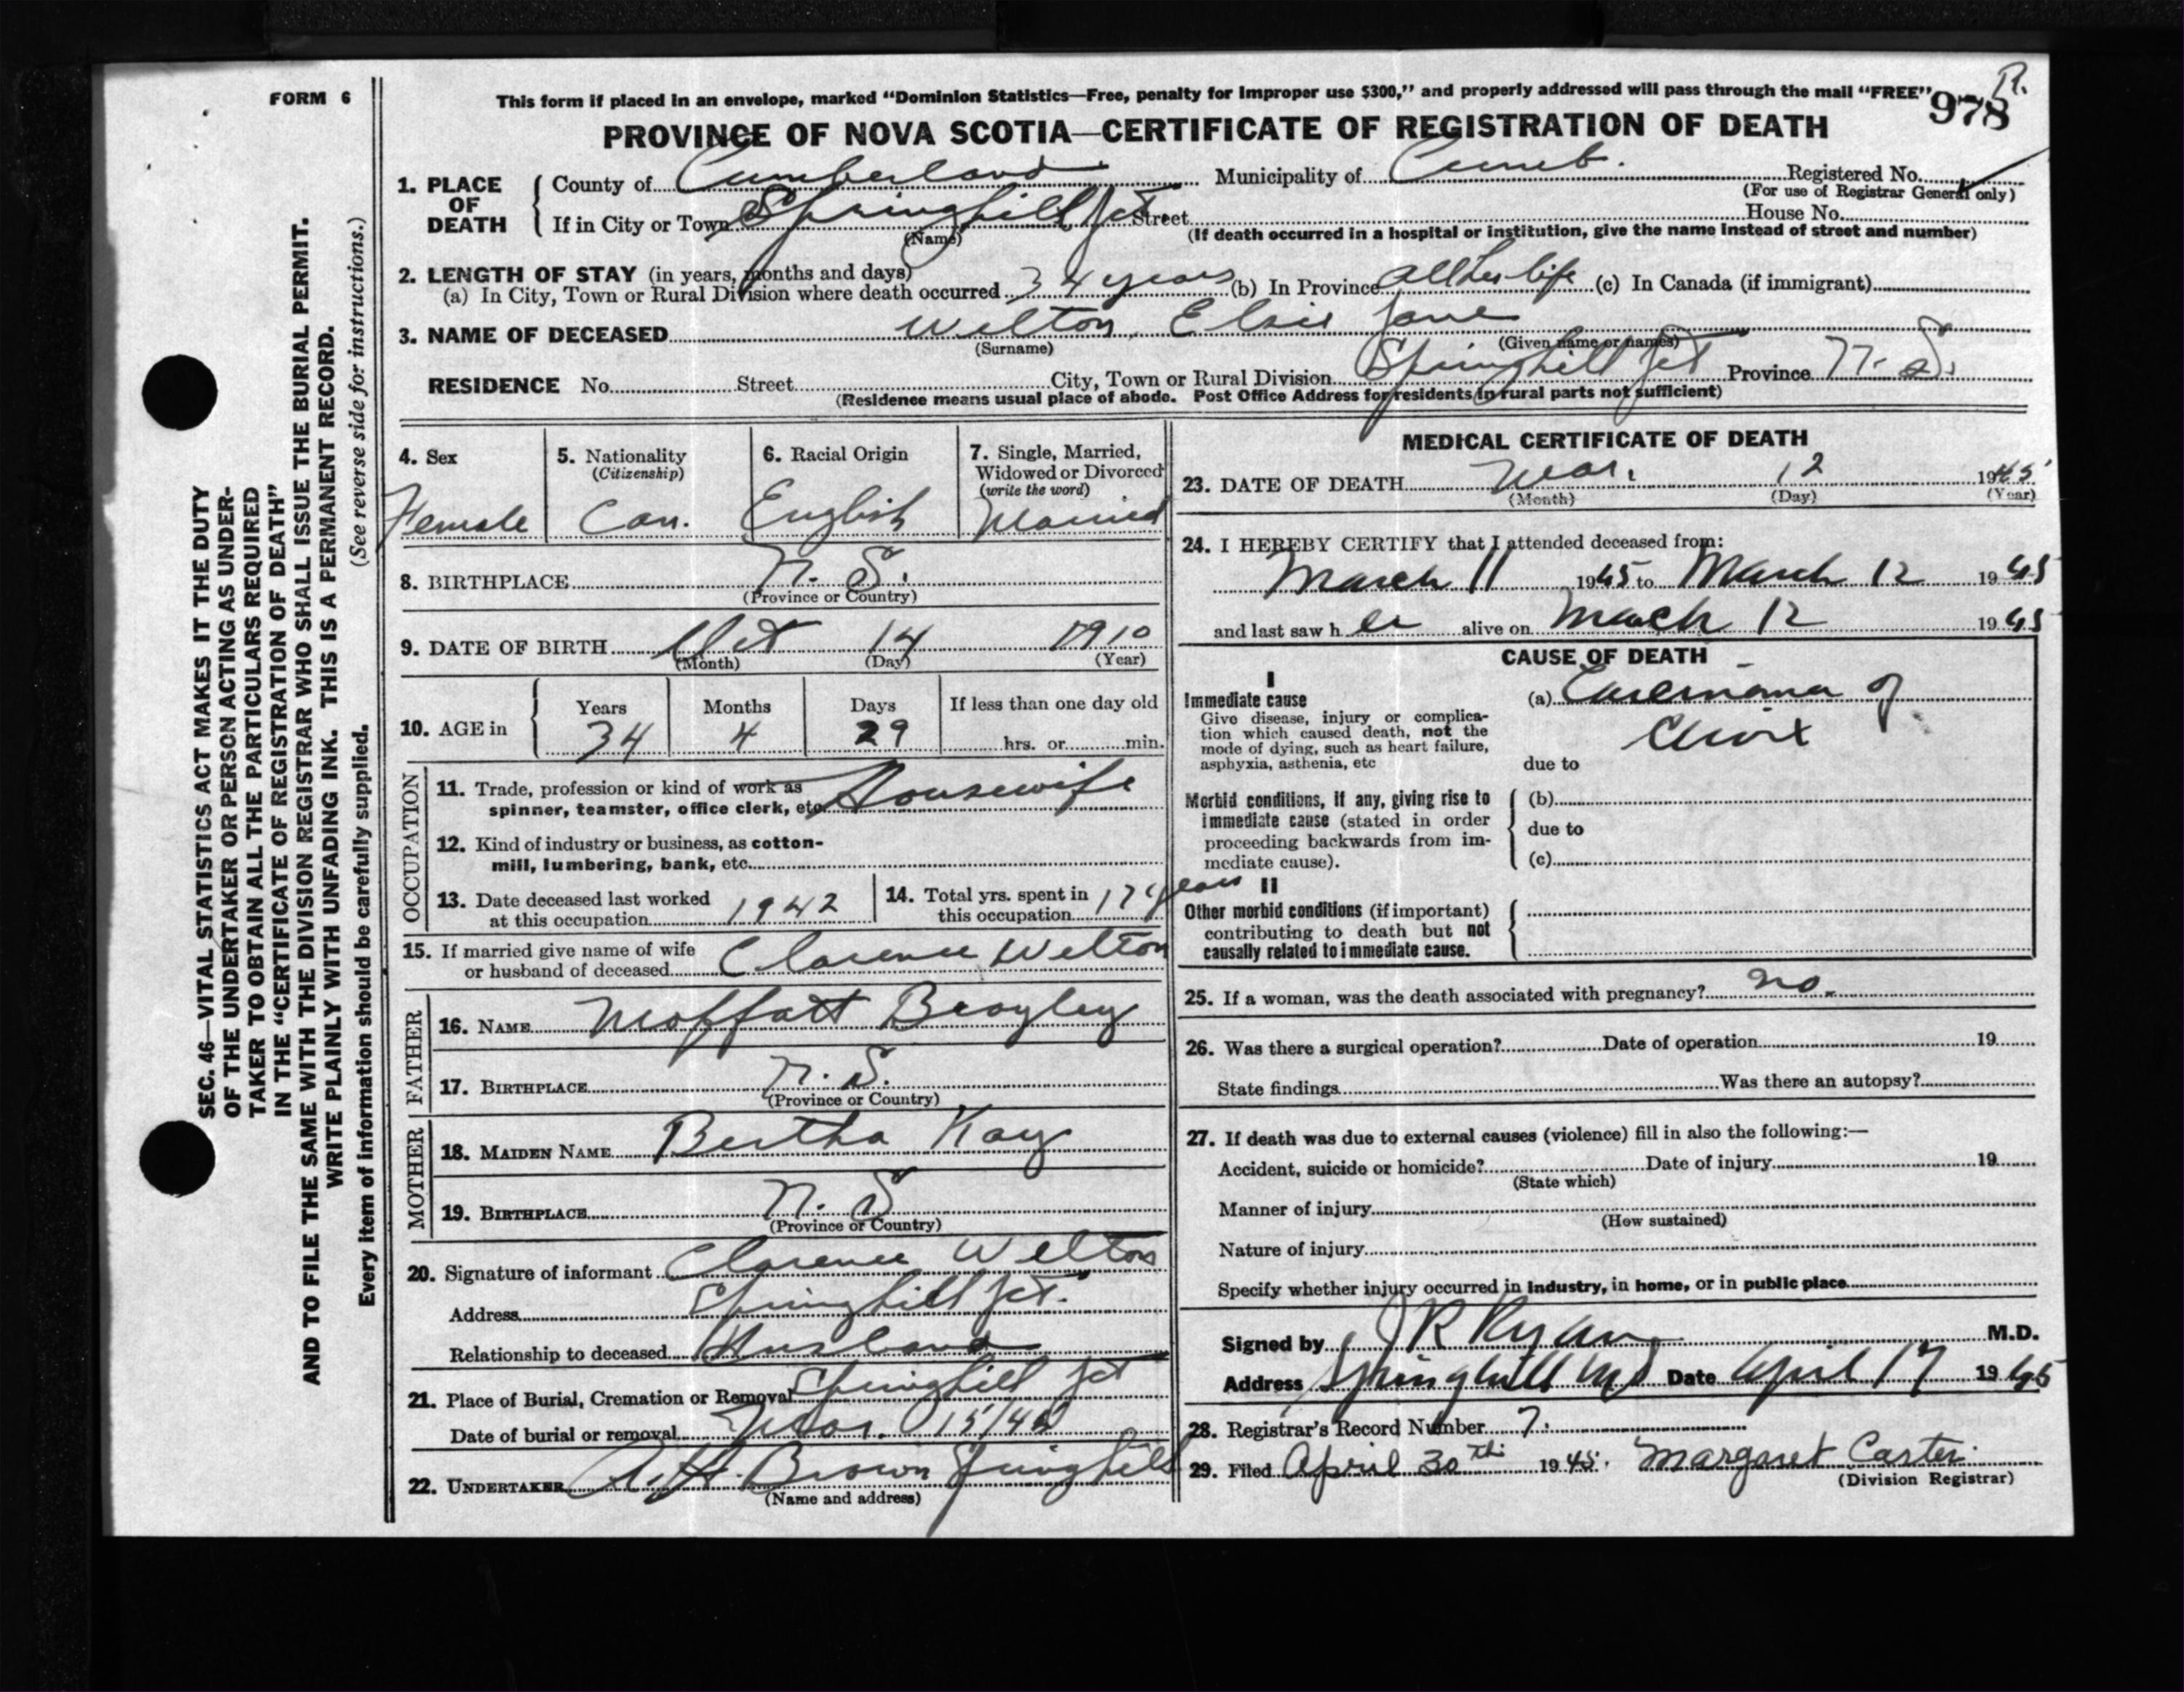 FORM 6
This form if placed in an envelope, marked "Dominion Statistics—Free, penalty for improper use $300," and properly addressed will pass through the mail "FREE"
R.
978
PROVINCE OF NOVA SCOTIA—CERTIFICATE OF REGISTRATION OF DEATH
1. PLACE OF DEATH
County of Cumberland Municipality of Cumb. Registered No.
(For use of Registrar General only)
If in City or Town Springhill Jct. Street House No.
(Name) (If death occurred in a hospital or institution, give the name instead of street and number)
2. LENGTH OF STAY (in years, months and days)
(a) In City, Town or Rural Division where death occurred 34 years (b) In Province all her life (c) In Canada (if immigrant)
3. NAME OF DECEASED Welton, Elsie Jane
(Surname) (Given name or names)
RESIDENCE No. Street City, Town or Rural Division Springhill Jct Province N. S.
(Residence means usual place of abode. Post Office Address for residents in rural parts not sufficient)
4. Sex 5. Nationality 6. Racial Origin 7. Single, Married,
(Citizenship) Widowed or Divorced
(write the word)
Female Can. English Married
8. BIRTHPLACE N. S.
(Province or Country)
9. DATE OF BIRTH Oct 14 1910
(Month) (Day) (Year)
10. AGE in Years Months Days If less than one day old
34 4 29 hrs. or min.
OCCUPATION
11. Trade, profession or kind of work as
spinner, teamster, office clerk, etc. Housewife
12. Kind of industry or business, as cotton-
mill, lumbering, bank, etc.
13. Date deceased last worked
at this occupation 1942
14. Total yrs. spent in
this occupation 17 years
15. If married give name of wife
or husband of deceased Clarence Welton
FATHER
16. NAME Moffatt Beagley
17. BIRTHPLACE N. S.
(Province or Country)
MOTHER
18. MAIDEN NAME Bertha Kay
19. BIRTHPLACE N. S
(Province or Country)
20. Signature of informant Clarence Welton
Address Springhill Jct.
Relationship to deceased Husband
21. Place of Burial, Cremation or Removal Springhill Jct
Date of burial or removal Mar. 15/45
22. UNDERTAKER A. H. Brown Springhill
(Name and address)
MEDICAL CERTIFICATE OF DEATH
23. DATE OF DEATH Mar. 12 1945
(Month) (Day) (Year)
24. I HEREBY CERTIFY that I attended deceased from:
March 11 1945 to March 12 1945
and last saw h er alive on March 12 1945
CAUSE OF DEATH
I
Immediate cause
Give disease, injury or complica-
tion which caused death, not the
mode of dying, such as heart failure,
asphyxia, asthenia, etc
(a) of
due to
Morbid conditions, if any, giving rise to
immediate cause (stated in order
proceeding backwards from im-
mediate cause).
(b)
due to
(c)
II
Other morbid conditions (if important)
contributing to death but not
causally related to immediate cause.
25. If a woman, was the death associated with pregnancy? no.
26. Was there a surgical operation? Date of operation 19
State findings Was there an autopsy?
27. If death was due to external causes (violence) fill in also the following:—
Accident, suicide or homicide? Date of injury 19
(State which)
Manner of injury
(How sustained)
Nature of injury
Specify whether injury occurred in industry, in home, or in public place
Signed by J R Ryan M.D.
Address Springhill NS Date April 17 1945
28. Registrar's Record Number 7.
29. Filed April 30th 1945. Margaret Carter
(Division Registrar)
SEC. 46—VITAL STATISTICS ACT MAKES IT THE DUTY
OF THE UNDERTAKER OR PERSON ACTING AS UNDER-
TAKER TO OBTAIN ALL THE PARTICULARS REQUIRED
IN THE "CERTIFICATE OF REGISTRATION OF DEATH"
AND TO FILE THE SAME WITH THE DIVISION REGISTRAR WHO SHALL ISSUE THE BURIAL PERMIT.
WRITE PLAINLY WITH UNFADING INK. THIS IS A PERMANENT RECORD.
Every item of information should be carefully supplied. (See reverse side for instructions.)